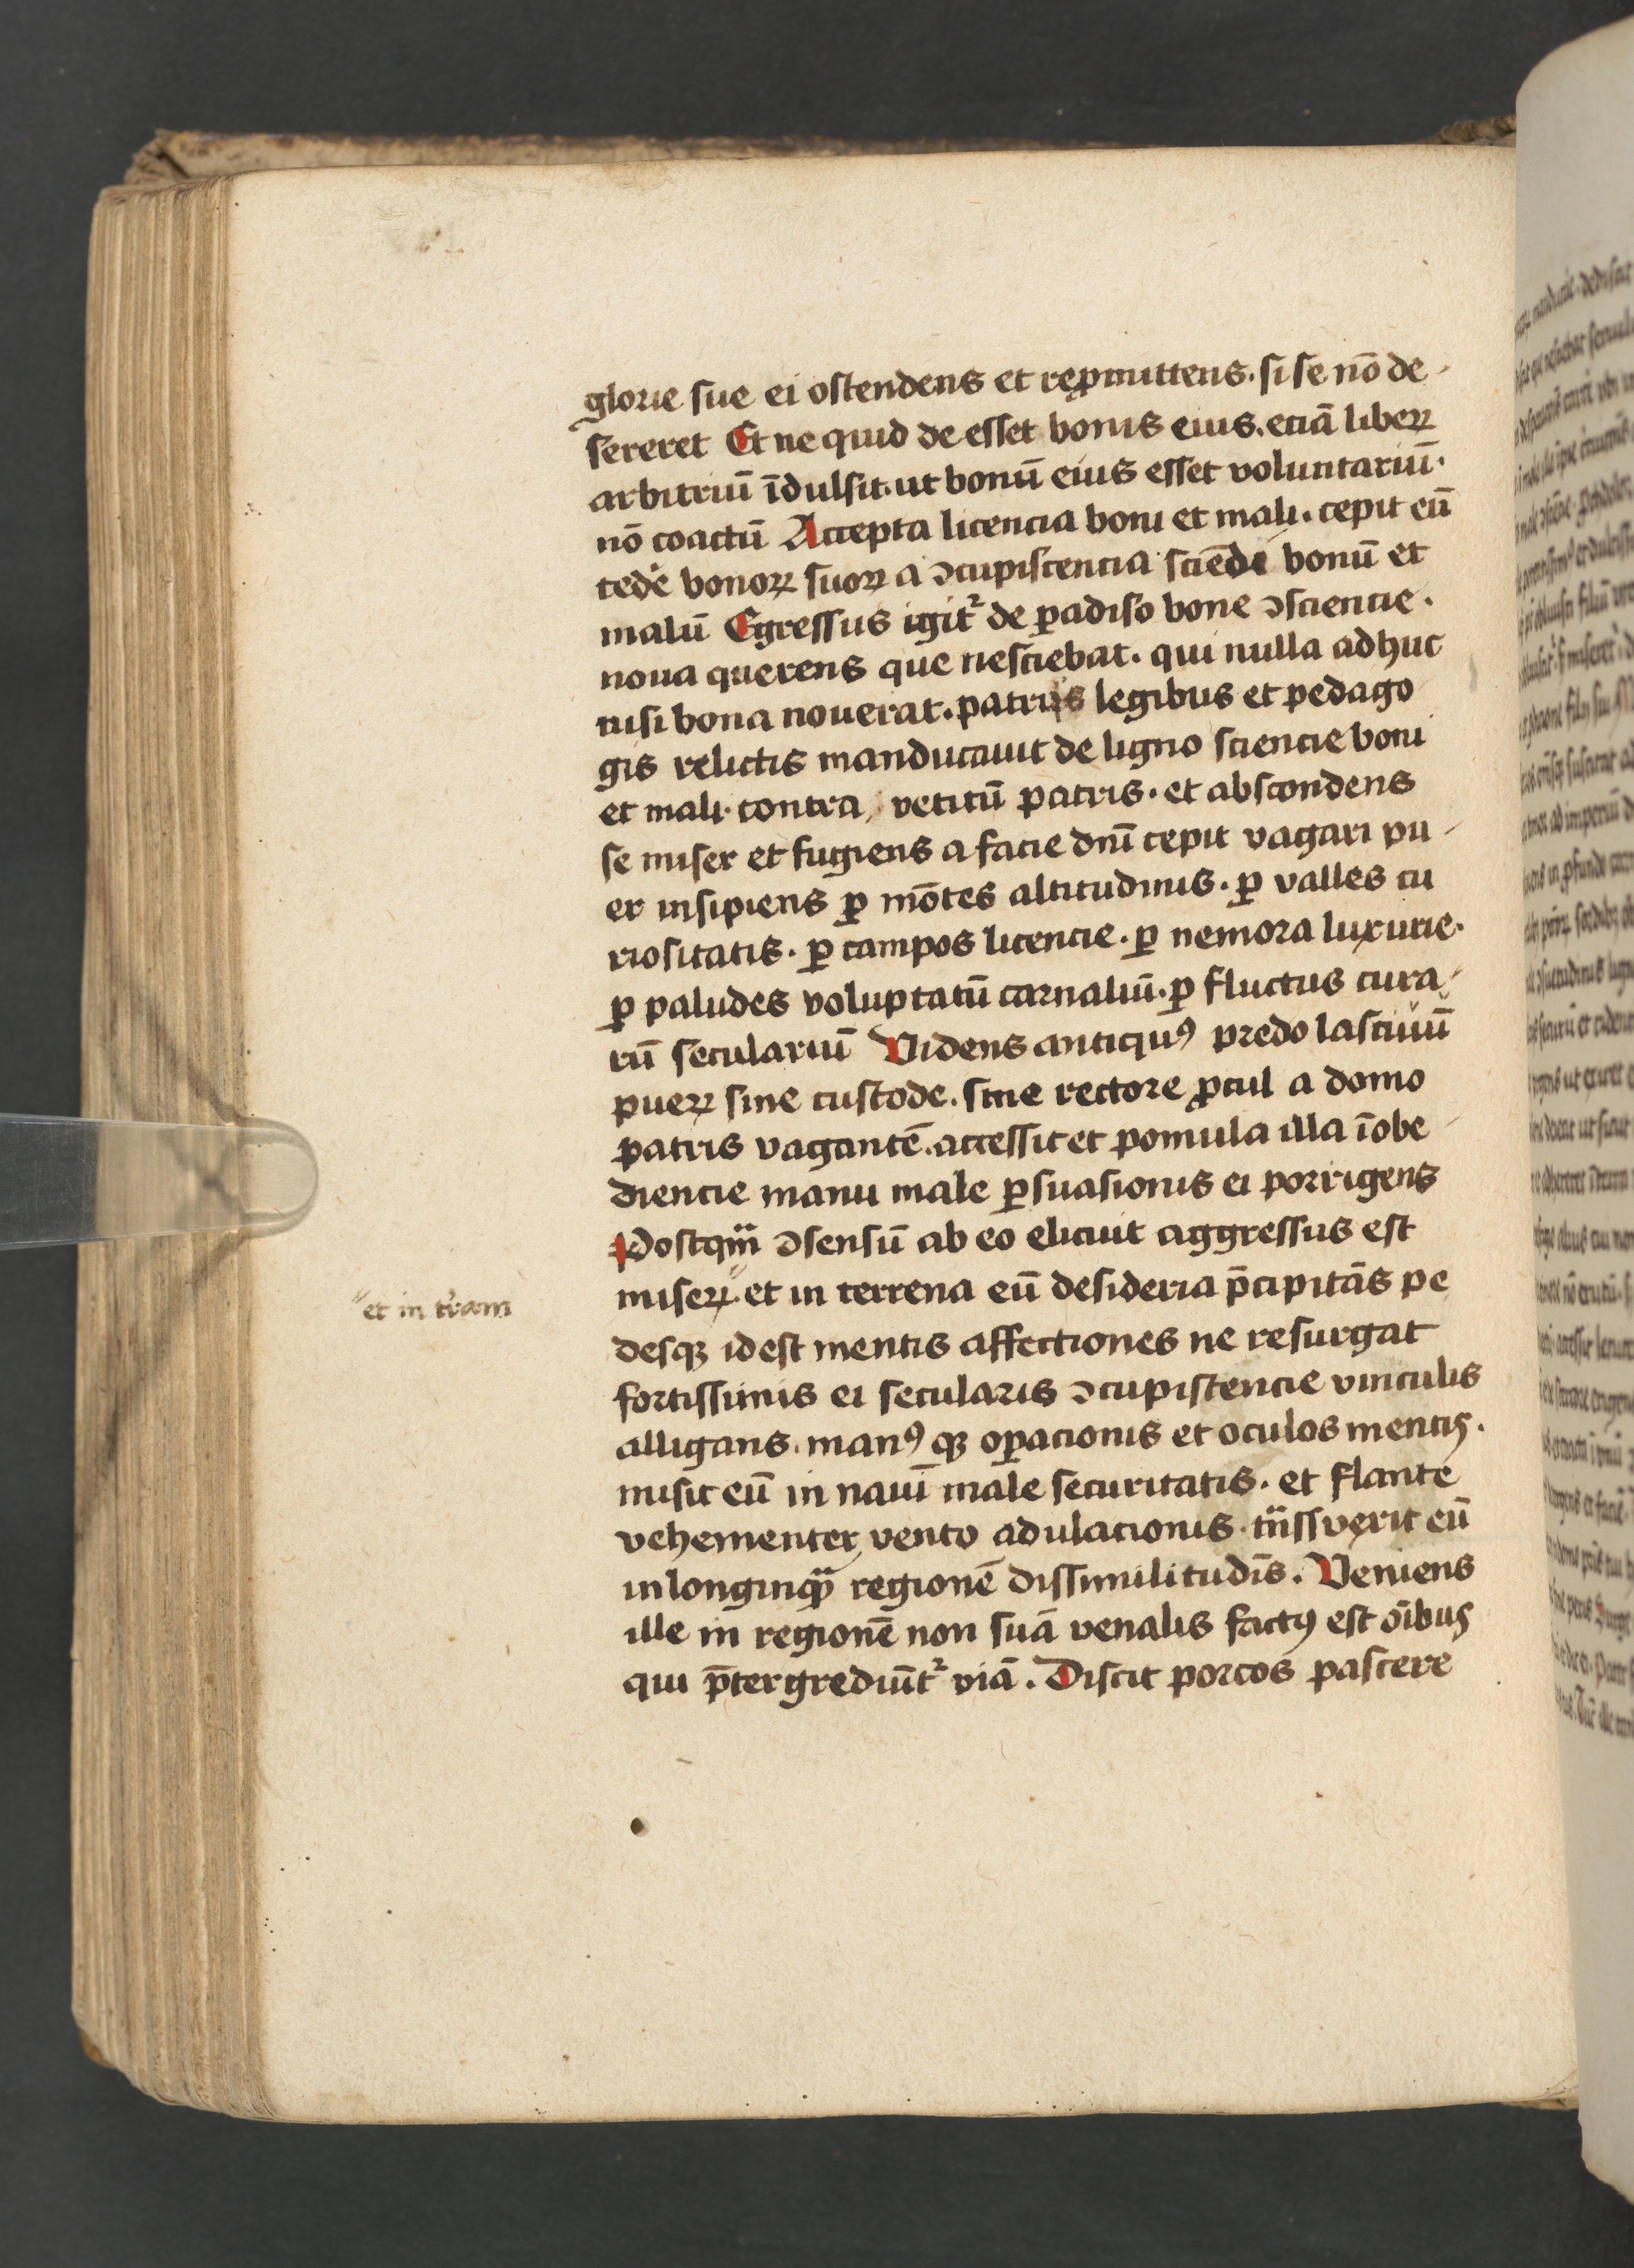 glorie sue ei ostendens et rep̱mittens. si se nō de-
sereret Et ne quid de esset bonis eius. etiā liberꝝ
arbitriū īdulsit. ut bonū eius esset voluntariū.
nō coactū Accepta licencia boni et mali. cepit eū
tedē bonoꝝ suoꝝ a ↄcupiscencia sciēdi bonū et
malū Egressus igit᷑ de ꝑadiso bone ↄsciencie.
noua querens que nesciebat. qui nulla adhuc
nisi bona nouerat. patriis legibus et pedago
gis relictis manducauit de ligno sciencie boni
et mali. contra vetitū patris. et abscondens
se miser et fugiens a facie dnī cepit vagari pu-
er insipiens ꝑ mōtes altitudinis. ꝑ valles cu
riositatis. ꝑ campos licencie. ꝑ nemora luxurie.
ꝑ paludes voluptatū carnaliū. ꝑ fluctus cura-
rū seculariū Videns antiquꝰ predo lasciuū
puerꝝ sine custode. sine rectore ꝓcul a domo
patris vagantē. accessit et pomula illa īobe-
diencie manu male ꝑsuasionis ei porrigens
Postqm̄ ↄsensū ab eo elicuit aggressus est
miserꝝ. " et in terrena eū desideria p̄cipitās pe
desqꝫ id est mentis affectiones ne resurgat
fortissimis ei secularis ↄcupiscencie vinculis
alligans. manꝰ qꝫ oꝑacionis et oculos mentis.
misit eū in nauī male securitatis. et flante
vehementer vento adulacionis. tn̄ssverit eū
in longinqͣ̄ regionē dissimilitudīs. Veniens
ille in regionē non suā venalis factꝰ est oībus
qui p̄tergrediūt᷑ viā. Discit porcos pascere
" et in tr̄am